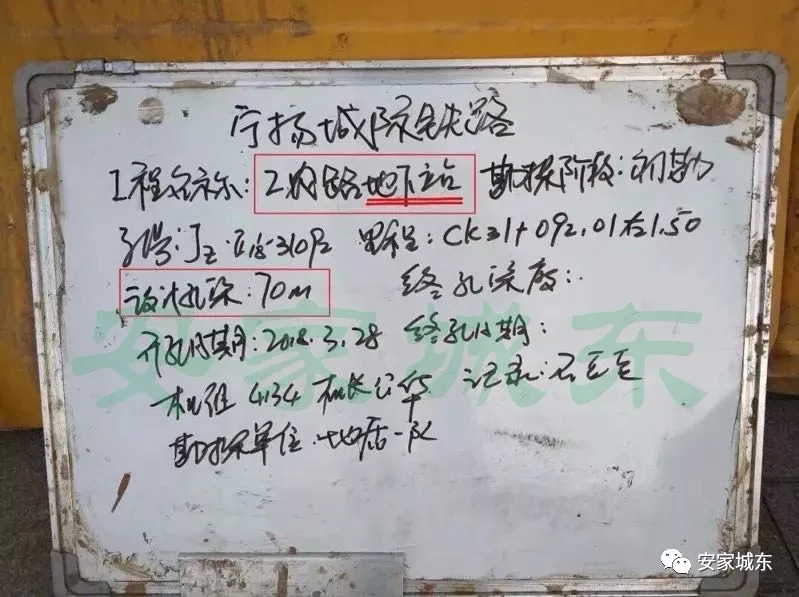 宁扬城际铁路
工程名称: 工农路地下立 勘探阶段: 初勘
孔号: Jz·Ⅱ18-31092 里程: CK31+092.01右1.50
设计孔深: 70m 终孔深度:
开孔日期: 2018.3.28 终孔日期:
机组 4134 机长 华 记录:
勘探单位: 地质一队
安家城东
安家城东